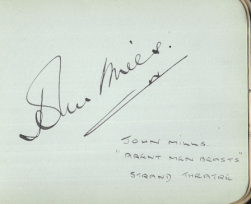 John Mills.
JOHN MILLS.
"BRENT MEN BEASTS"
STRAND THEATRE